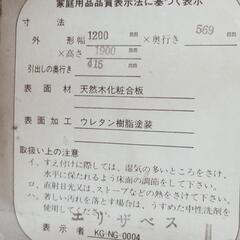 家庭用品品質表示法に基づく表示
寸法
外形幅 1200 mm × 奥行き 569 mm
×高さ 1900 mm
引出しの奥行き 415 mm
表面材 天然木化粧合板
表面加工 ウレタン樹脂塗装
取扱い上の注意
イ、すえ付けに際しては、湿気の多いところをさけ、
水平に保たれるよう床面の調節をして下さい。
ロ、直射日光又は、ストーブなどの熱をさけて下さい。
ハ、著しい汚れを落とす場合は、うすめた中性洗剤を
使用してください。
エリザベス
表示者 KG-NG-0004